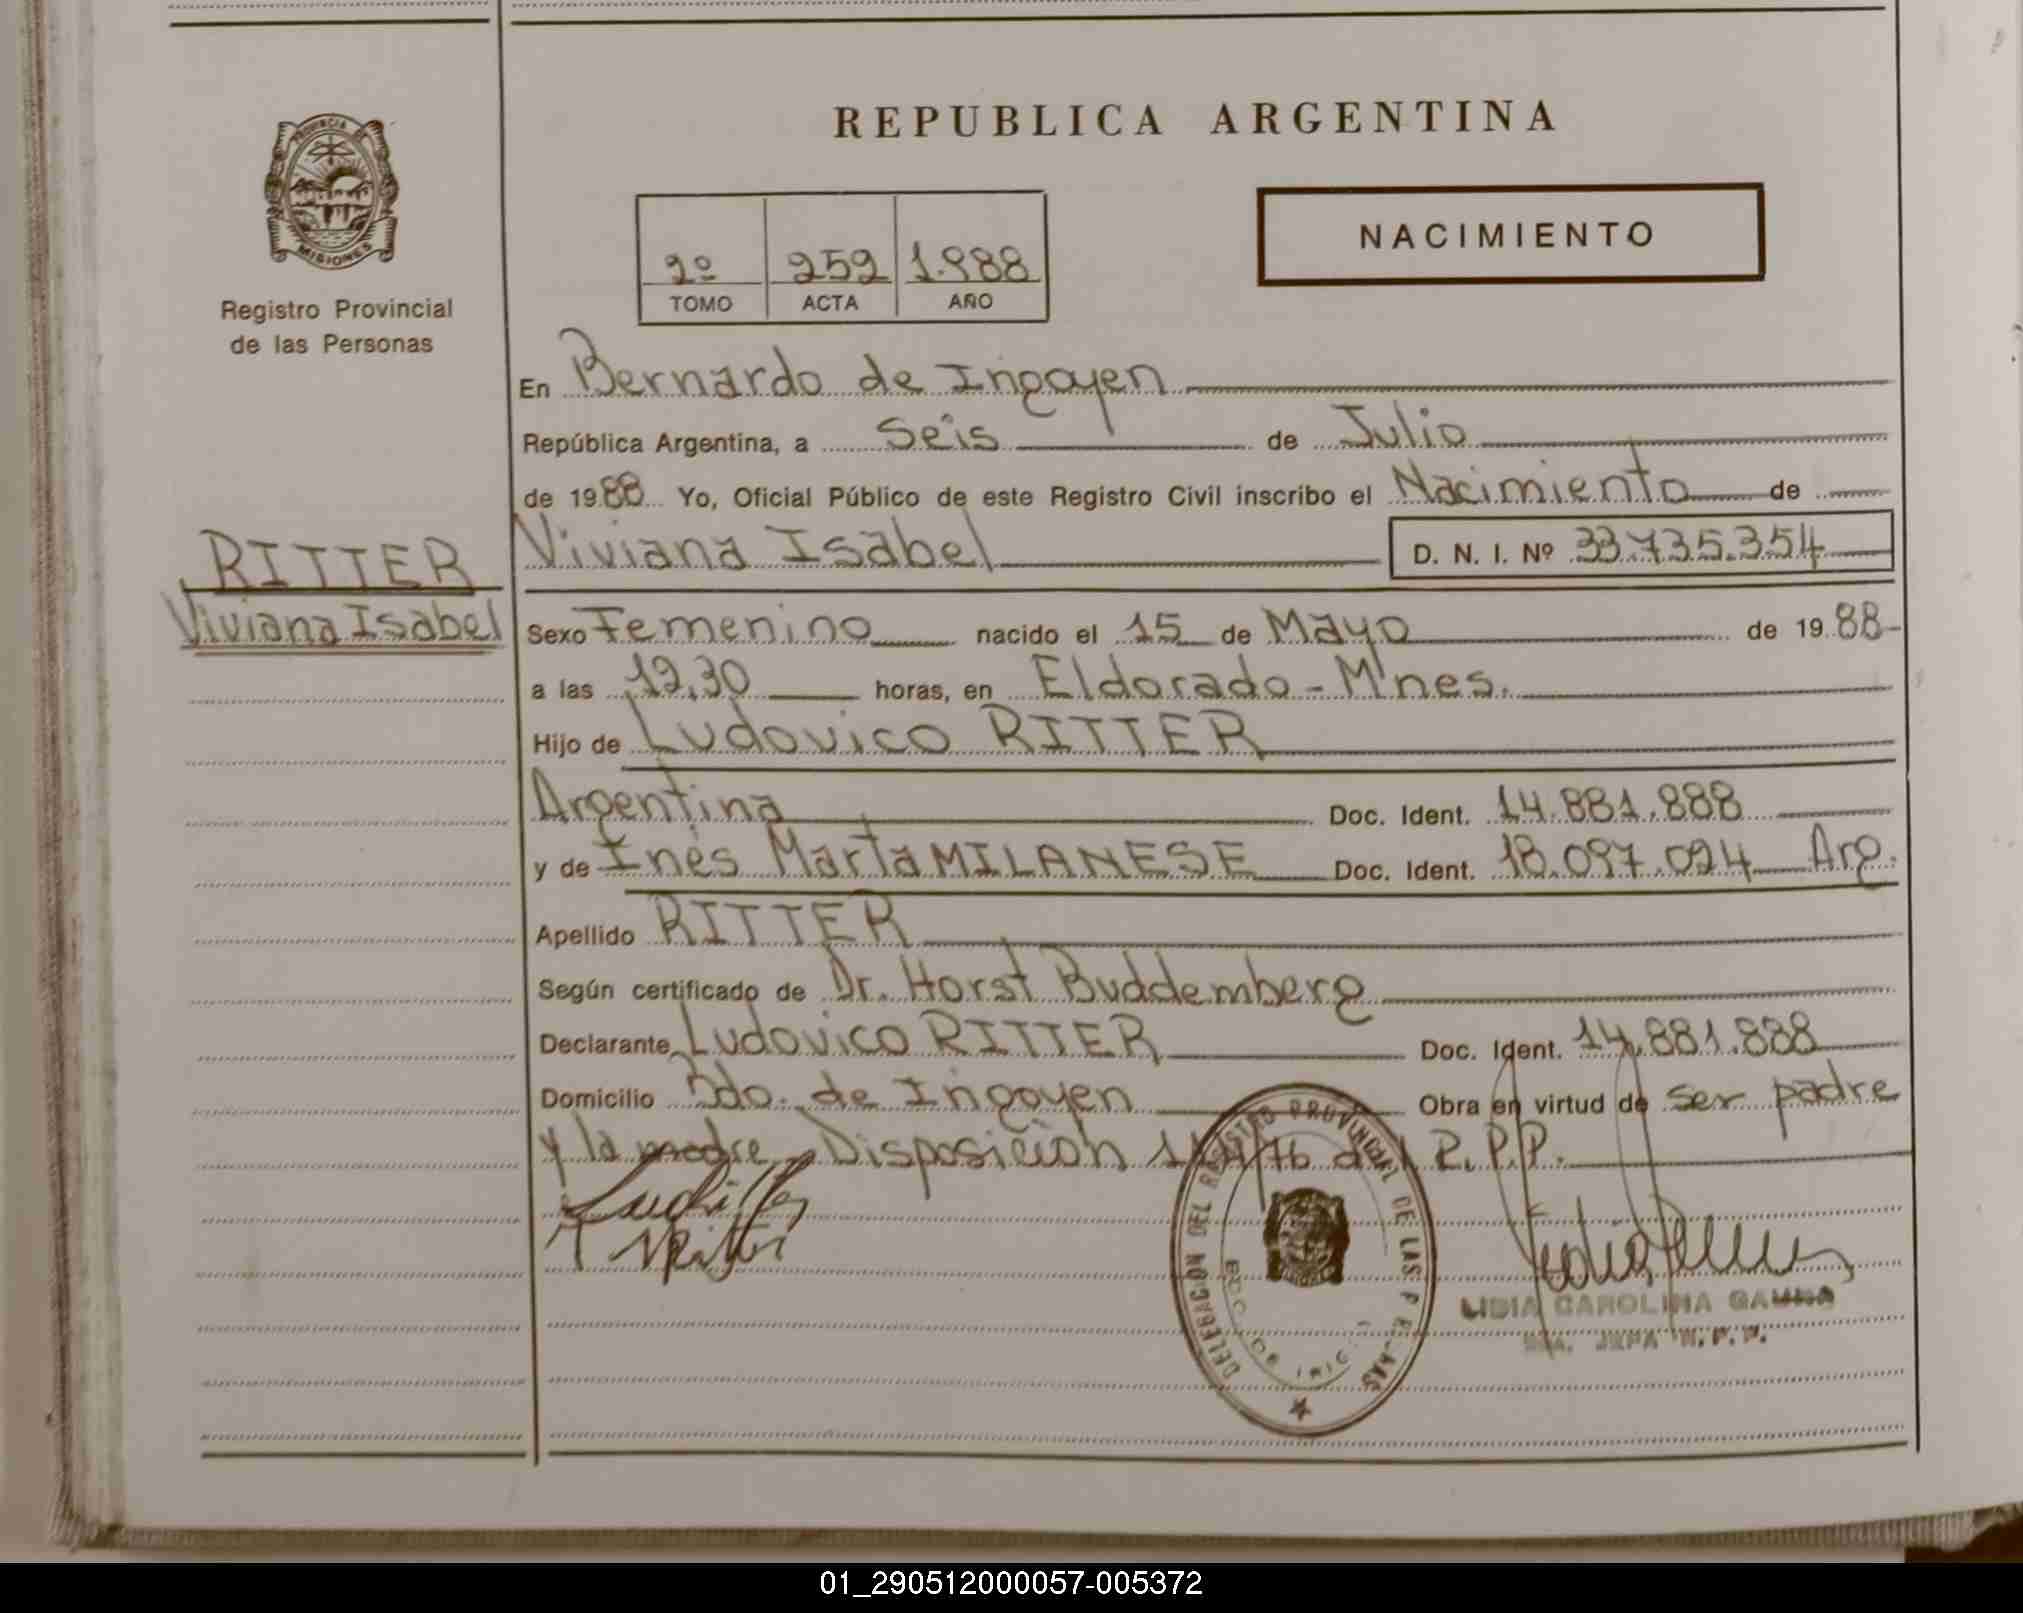 REPUBLICA ARGENTINA
PROVINCIA DE
MISIONES
Registro Provincial
de las Personas
2º 252 1.988
TOMO ACTA AÑO
NACIMIENTO
En Bernardo de Irigoyen
República Argentina, a Seis de Julio
de 1988 Yo, Oficial Público de este Registro Civil inscribo el Nacimiento de
RITTER
Viviana Isabel
Viviana Isabel D. N. I. Nº 33.735.354
Sexo Femenino nacido el 15 de Mayo de 1988
a las 12,30 horas, en Eldorado - M'nes.
Hijo de Ludovico RITTER
Argentina Doc. Ident. 14.881.888
y de Inés Marta MILANESE Doc. Ident. 18.097.024 Arg.
Apellido RITTER
Según certificado de Dr. Horst Buddemberg
Declarante Ludovico RITTER Doc. Ident. 14.881.888
Domicilio Bdo. de Irigoyen Obra en virtud de ser padre
y la madre Disposición /76 del R.P.P.
DELEGACIÓN DEL REGISTRO PROVINCIAL DE LAS PERSONAS
BDO. DE IRIG
LIDIA CAROLINA
JEFA R. P. P.
01_290512000057-005372